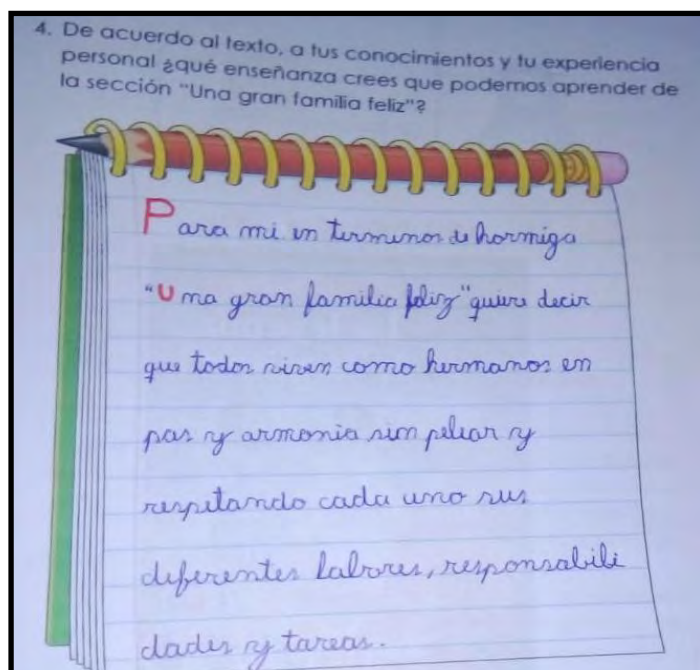 4. De acuerdo al texto, a tus conocimientos y tu experiencia
personal ¿qué enseñanza crees que podemos aprender de
la sección "Una gran familia feliz"?
Para mi en terminos de hormiga
"Una gran familia feliz" quiere decir
que todos viven como hermanos en
pas y armonia sin peliar y
respetando cada uno sus
diferentes labores, responsabili
dades y tareas.